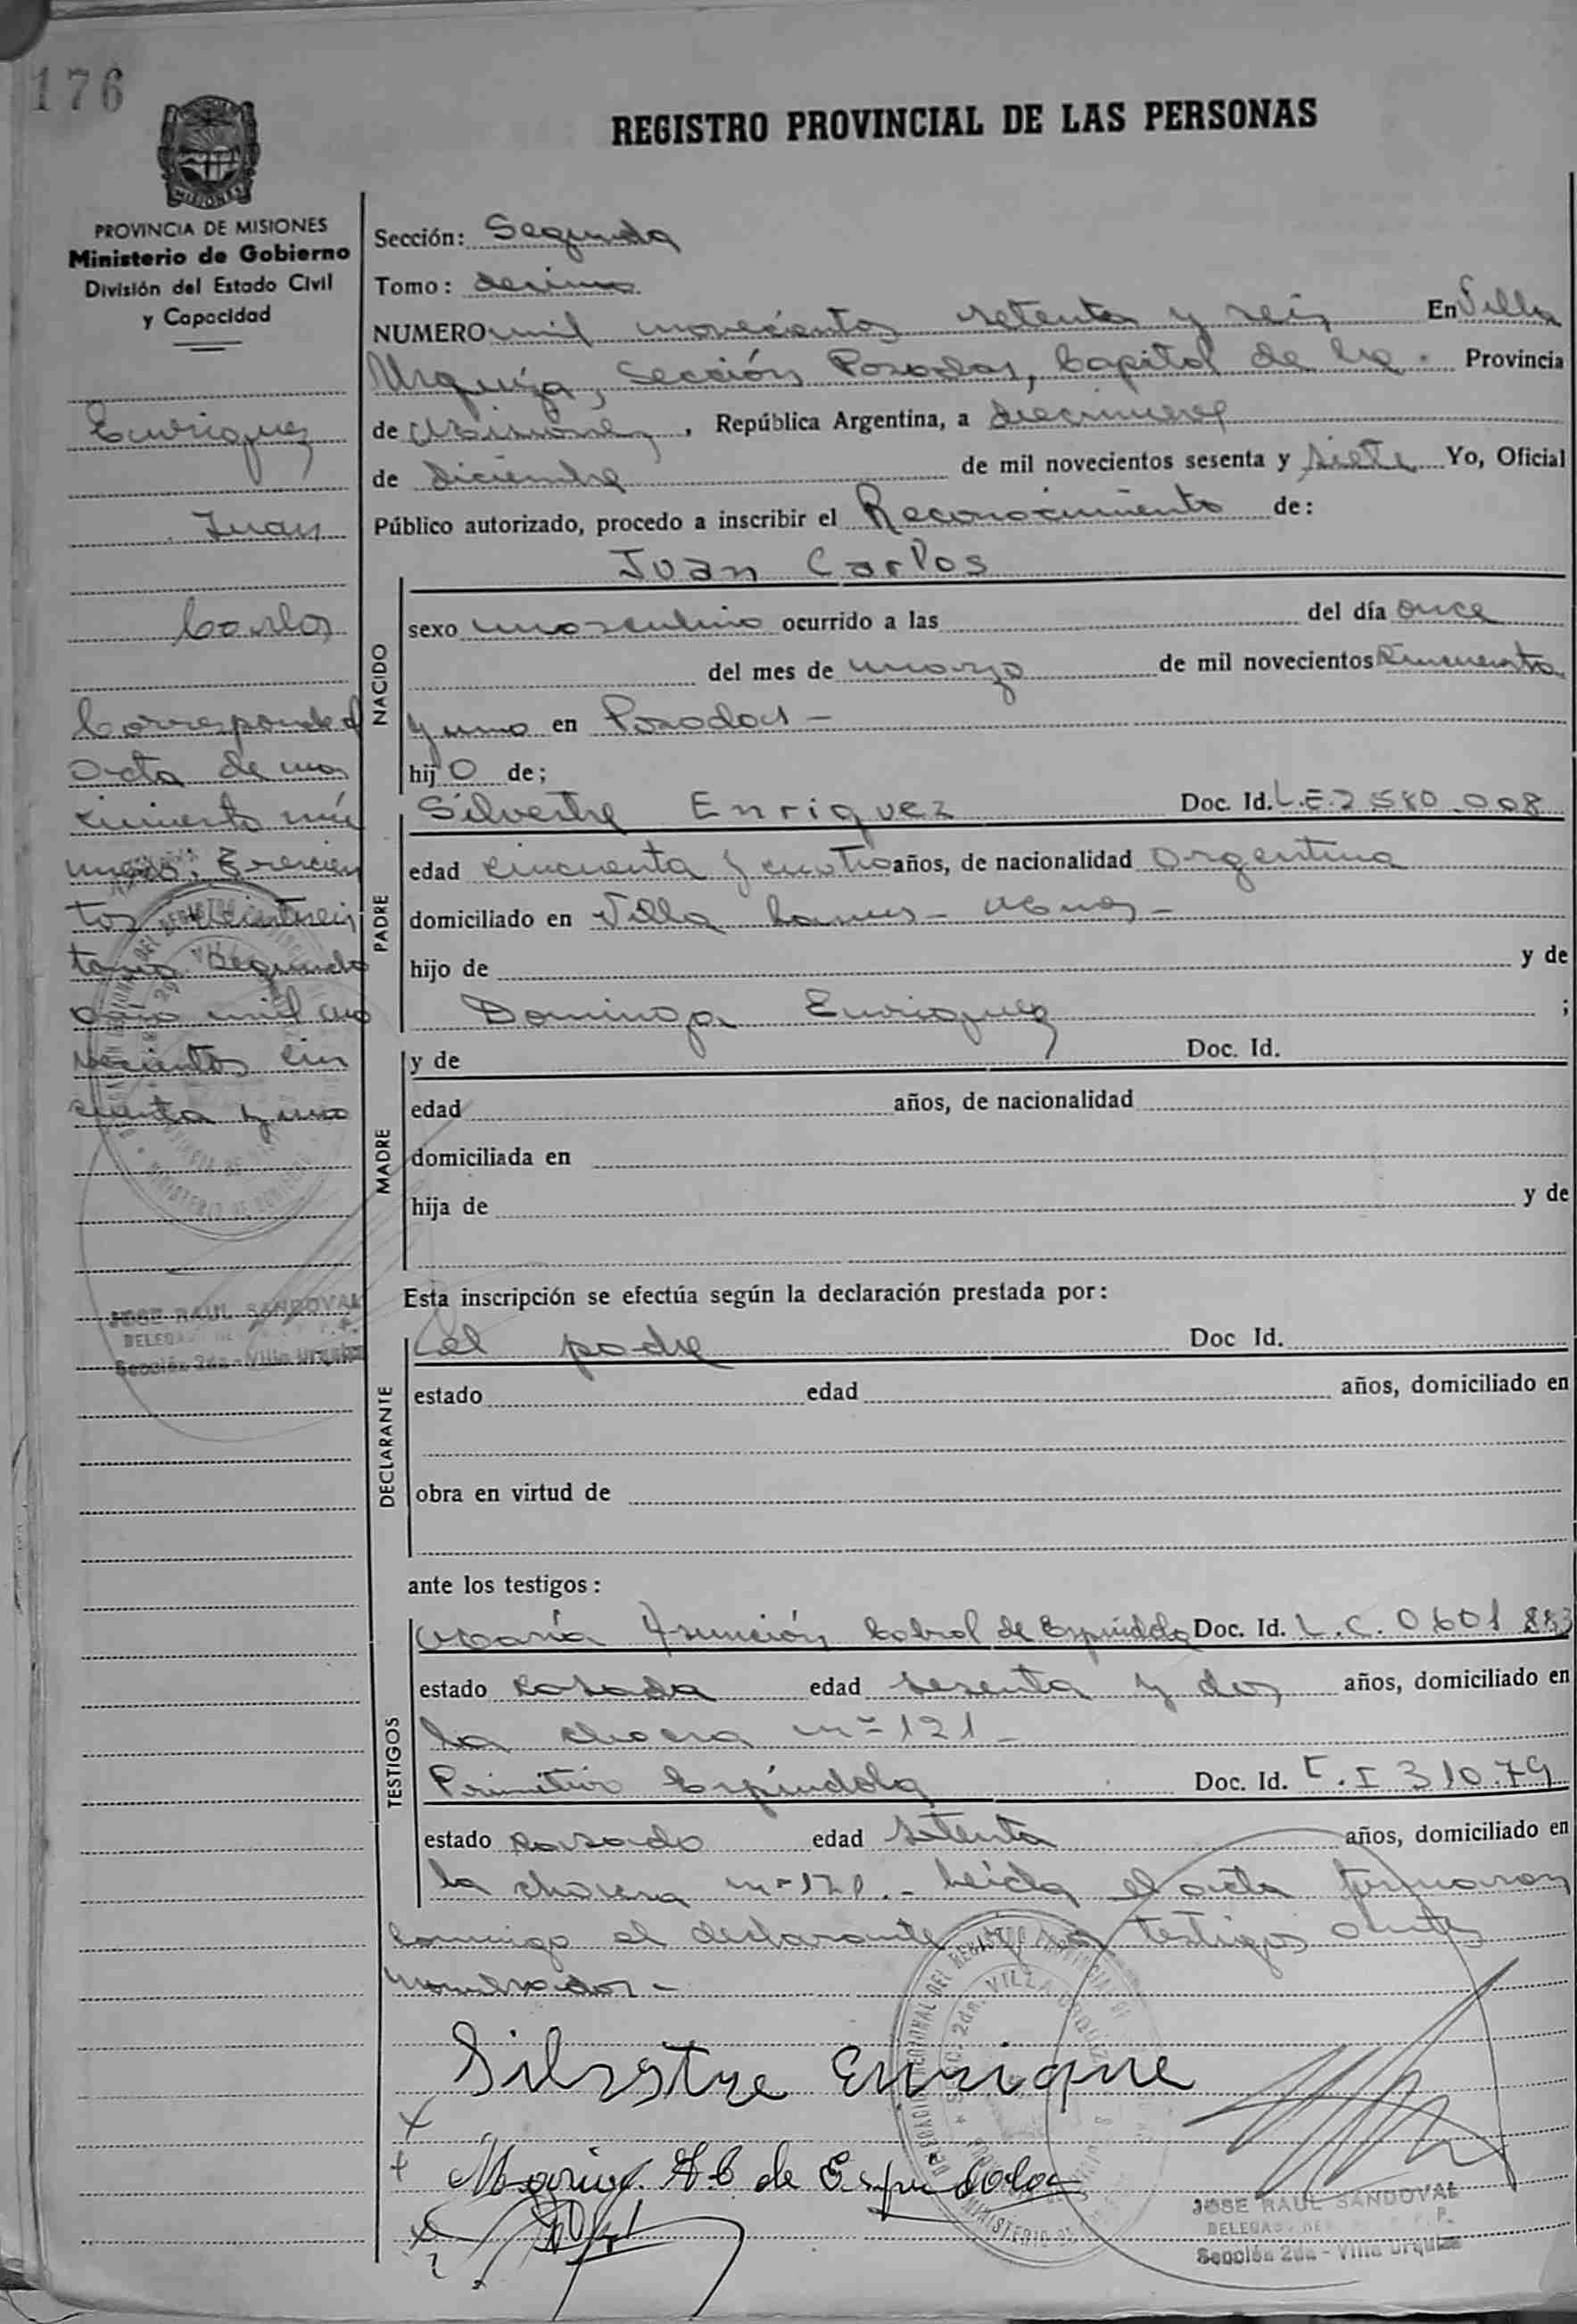 176
REGISTRO PROVINCIAL DE LAS PERSONAS
MISIONES
PROVINCIA DE MISIONES
Ministerio de Gobierno
División del Estado Civil
y Capacidad
Enriquez
Juan
Carlos
Corresponde al
acta de na
cimiento nú
mero: trecien
tos veintiseis
tomo segundo
año mil no
vecientos cin
cuenta y uno
JOSE RAUL SANDOVAL
Sección 2da - Villa Urquiza
Sección: Segunda
Tomo: decimo
NUMERO mil novecientos setenta y seis En Villa
Urquiza, Sección Posadas, Capital de la Provincia
de Misiones, República Argentina, a diecinueve
de diciembre de mil novecientos sesenta y siete Yo, Oficial
Público autorizado, procedo a inscribir el Reconocimiento de:
NACIDO
Juan Carlos
sexo masculino ocurrido a las del día once
del mes de marzo de mil novecientos cincuenta
y uno en Posadas -
hijo de;
PADRE
Silvestre Enriquez Doc. Id. L.E. 2.580.008
edad cincuenta y cuatro años, de nacionalidad argentina
domiciliado en Villa Lanus - Mnes -
hijo de y de
Dominga Enriquez ;
MADRE
y de Doc. Id.
edad años, de nacionalidad
domiciliada en
hija de y de
Esta inscripción se efectúa según la declaración prestada por:
DECLARANTE
el padre Doc Id.
estado edad años, domiciliado en
obra en virtud de
ante los testigos:
TESTIGOS
María Asunción Cabral de Espíndola Doc. Id. L.C. 0601883
estado casada edad sesenta y dos años, domiciliado en
la chacra nº 121 -
Primitivo Espíndola Doc. Id. C.I 31079
estado casado edad setenta años, domiciliado en
la chacra nº 121. - Leida el acta firmaron
conmigo el declarante y los testigos antes
nombrados -
Silvstre Enrique
Maria A C de Espindola
JOSE RAUL SANDOVAL
Sección 2da - Villa Urquiza